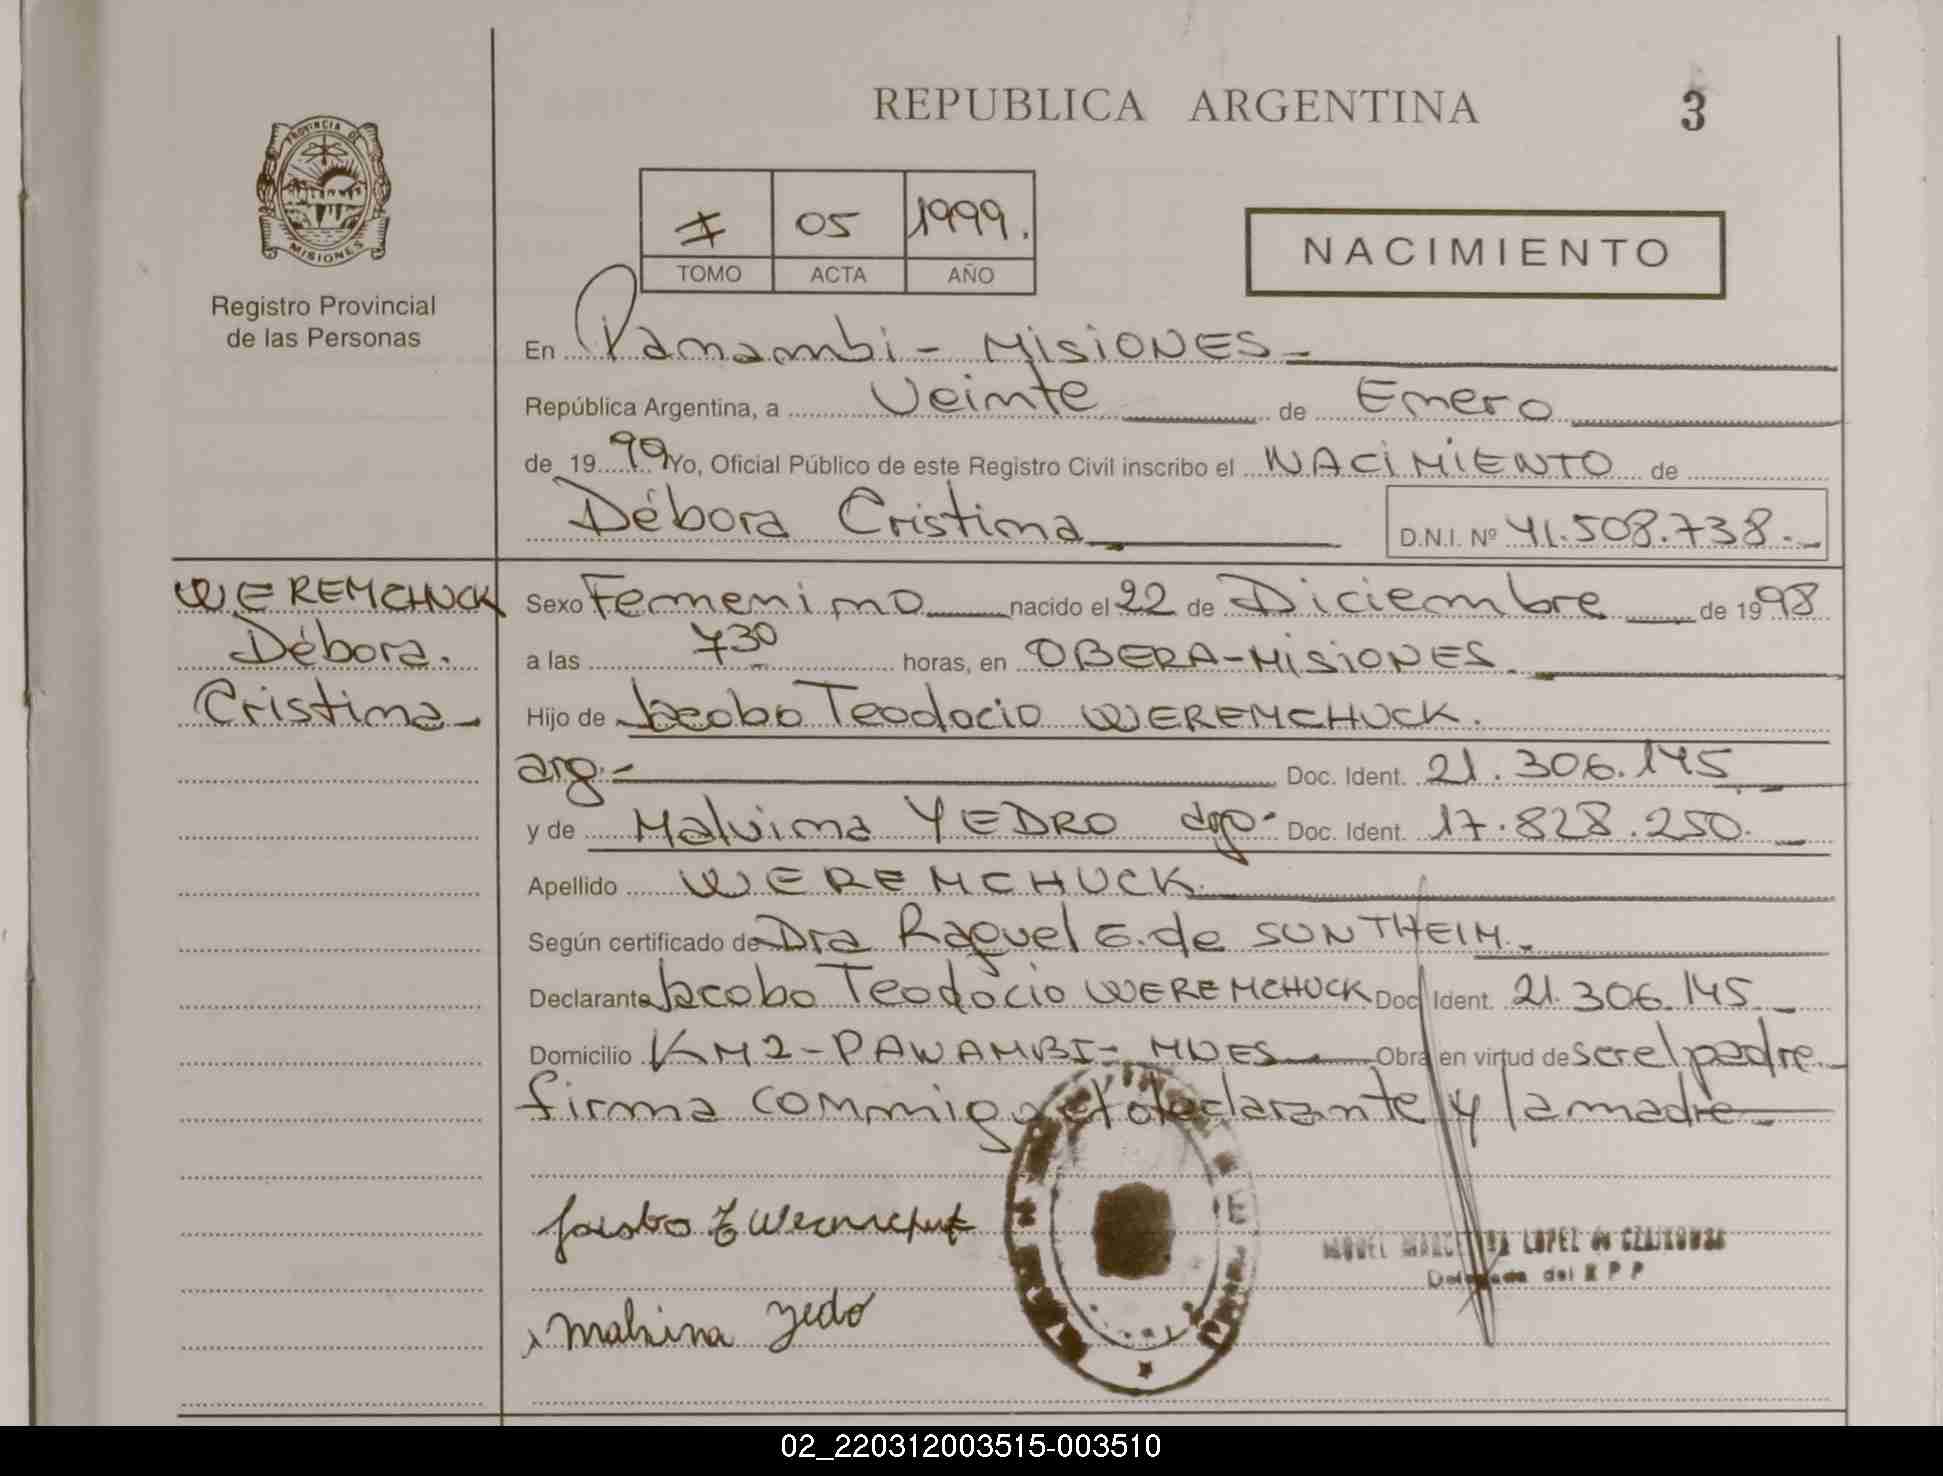 REPUBLICA ARGENTINA
3
PROVINCIA DE
MISIONES
Registro Provincial
de las Personas
I 05 1999.
TOMO ACTA AÑO
NACIMIENTO
En Panambi - MISIONES -
República Argentina, a Veinte de Enero
de 1999 Yo, Oficial Público de este Registro Civil inscribo el NACIMIENTO de
Débora Cristina
D.N.I. Nº 41.508.738.-
WEREMCHUCK
Débora.
Cristina -
Sexo Femenino nacido el 22 de Diciembre de 1998
a las 7 30 horas, en OBERA-MISIONES.
Hijo de Jacobo Teodocio WEREMCHUCK.
arg.- Doc. Ident. 21.306.145
y de Malvina YEDRO Doc. Ident. 17.828.250.
Apellido WEREMCHUCK
Según certificado de Dra Raquel G. de SUNTHEIM.
Declarante Jacobo Teodocio WEREMCHUCK Doc. Ident. 21.306.145
Domicilio KM2-PANAMBI- MNES Obra en virtud de ser el padre
firma conmigo el declarante y la madre
Malvina Yedro
LOPEZ de
Delegada del R P P
02_220312003515-003510